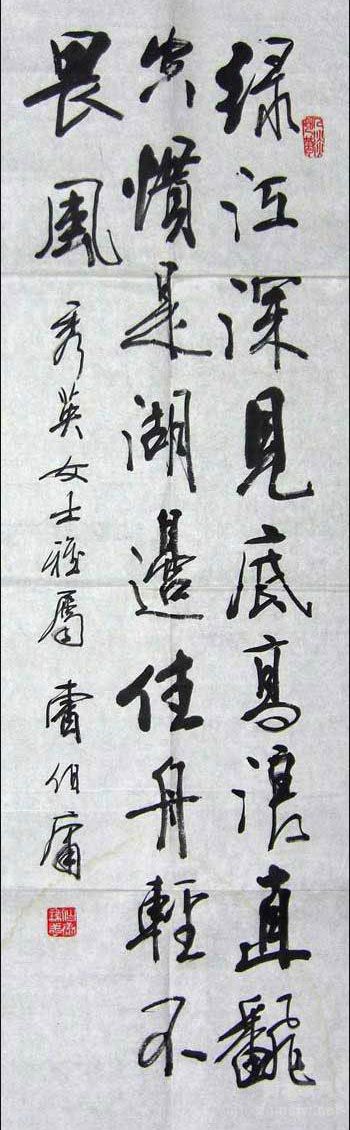 綠江深見底高浪直飜
空慣是湖邊住舟輕不
畏風
秀英女士雅屬 曹伯庸